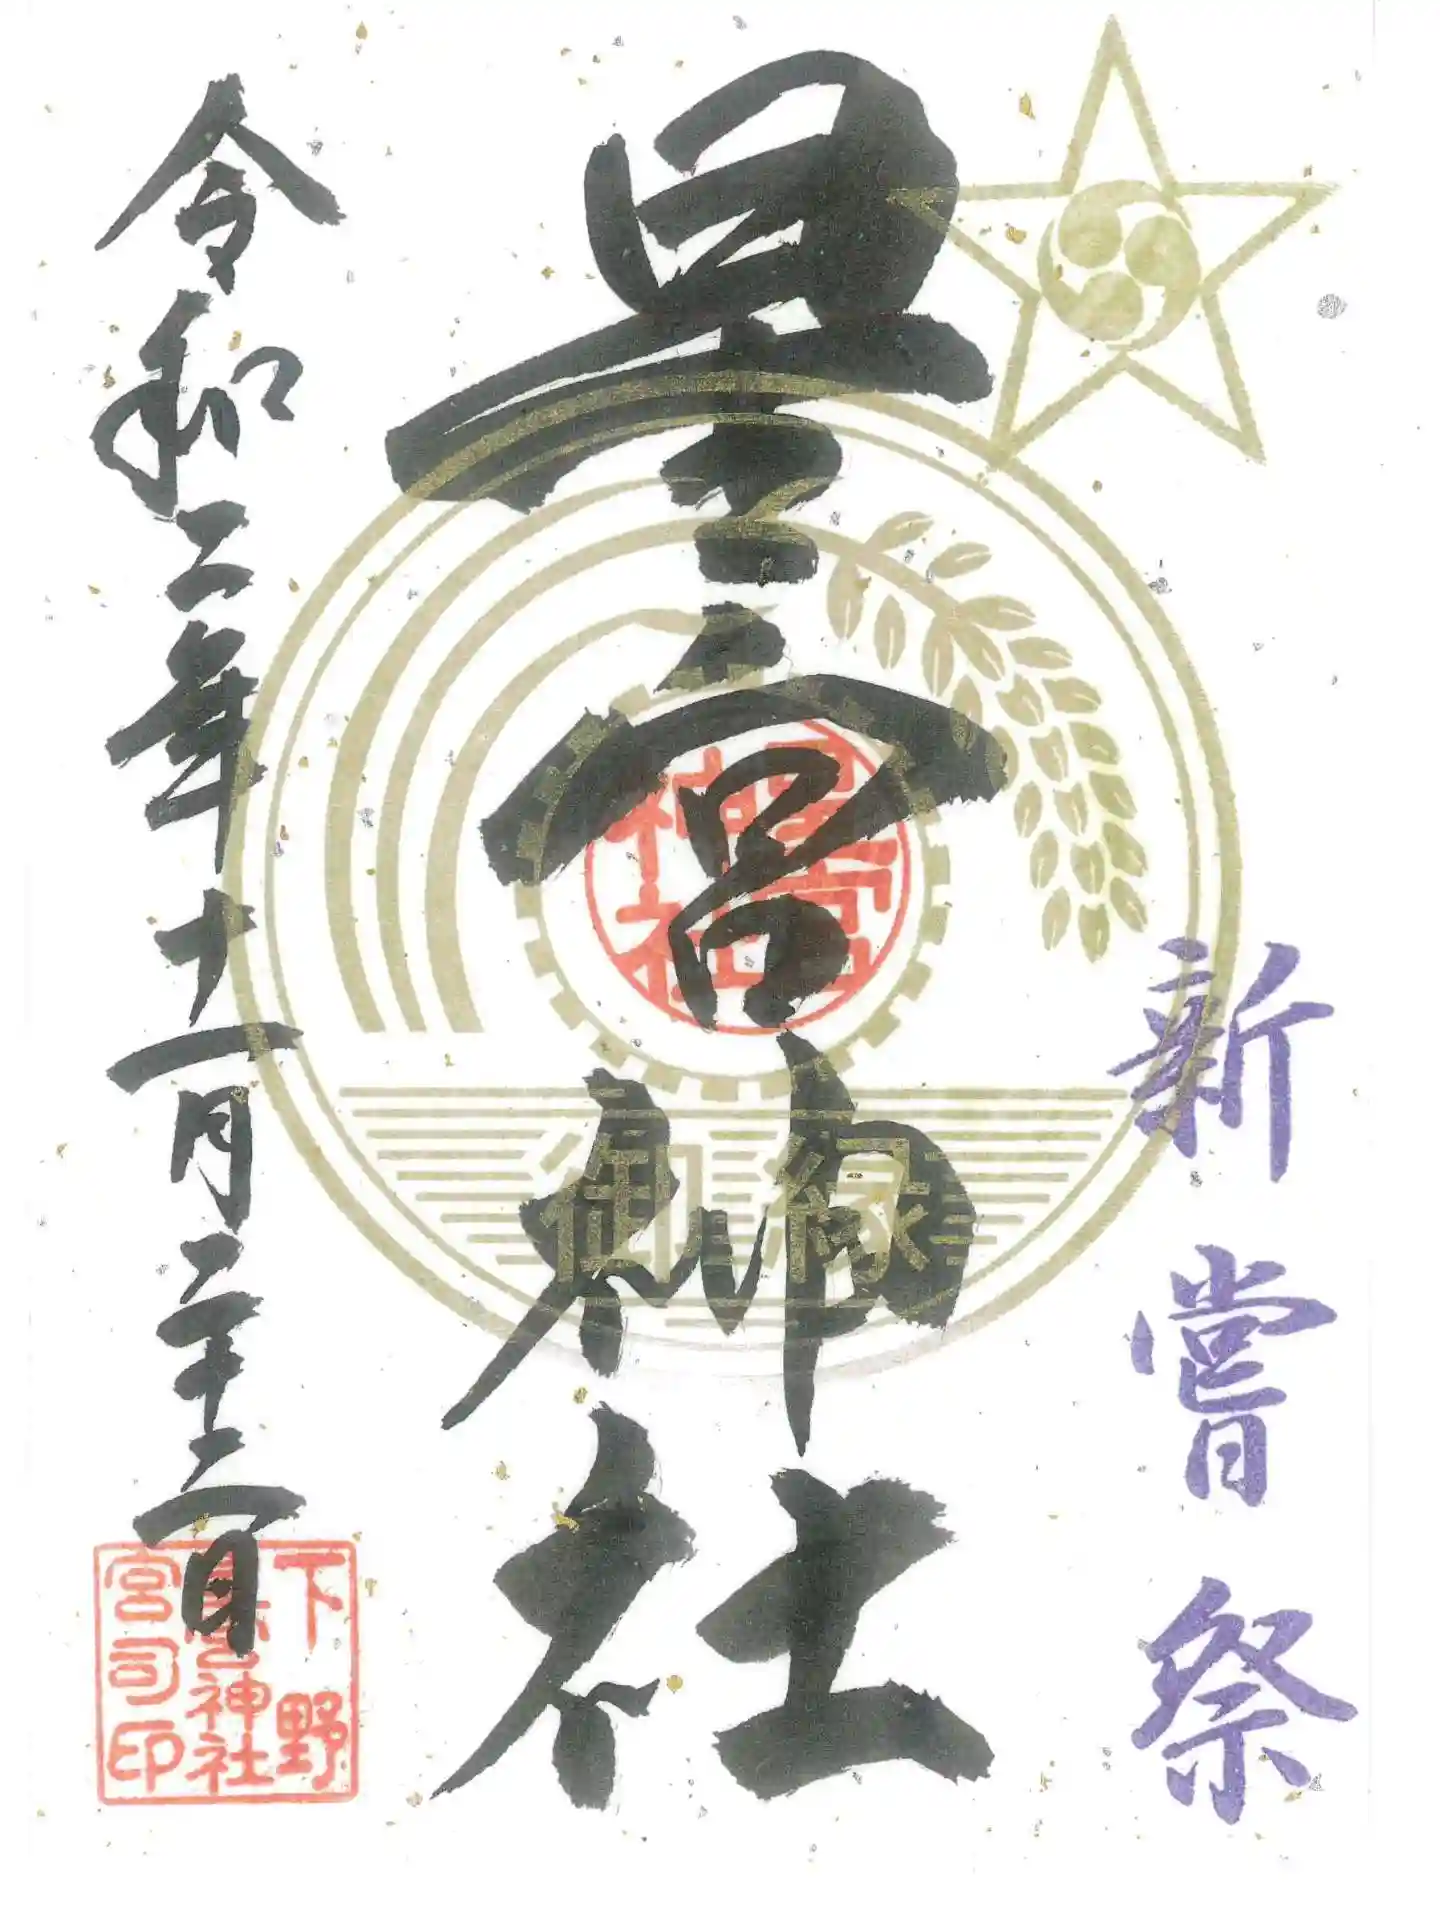 新嘗祭
星宮神社
星宮
神社
御縁
令和二年十一月二十三日
下野
星宮神社
宮司印